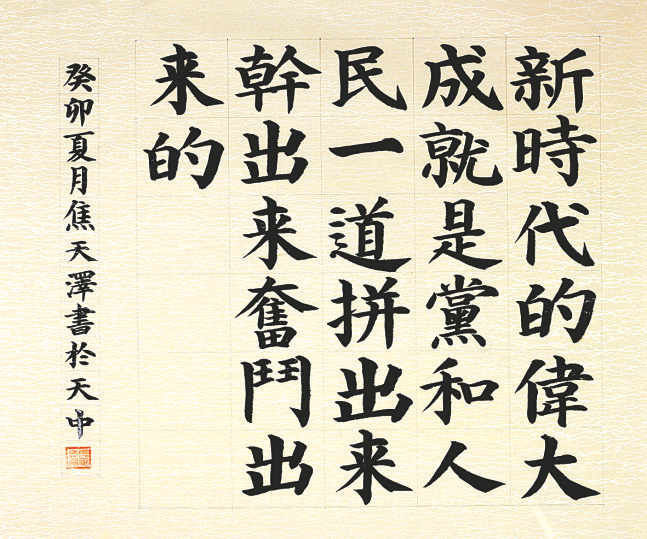 新時代的偉大
成就是黨和人
民一道拼出来
幹出来奮鬥出
来的
癸卯夏月焦天澤書於天中